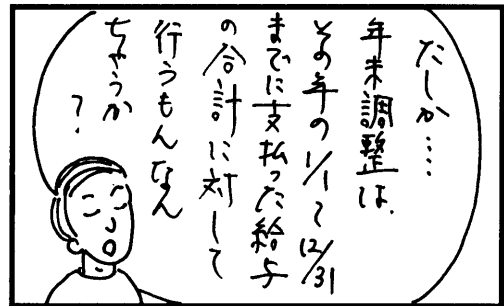 たしか……
年末調整は、
その年の1/1〜12/31
までに支払った給与
の合計に対して
行うもんなん
ちゃうか
？